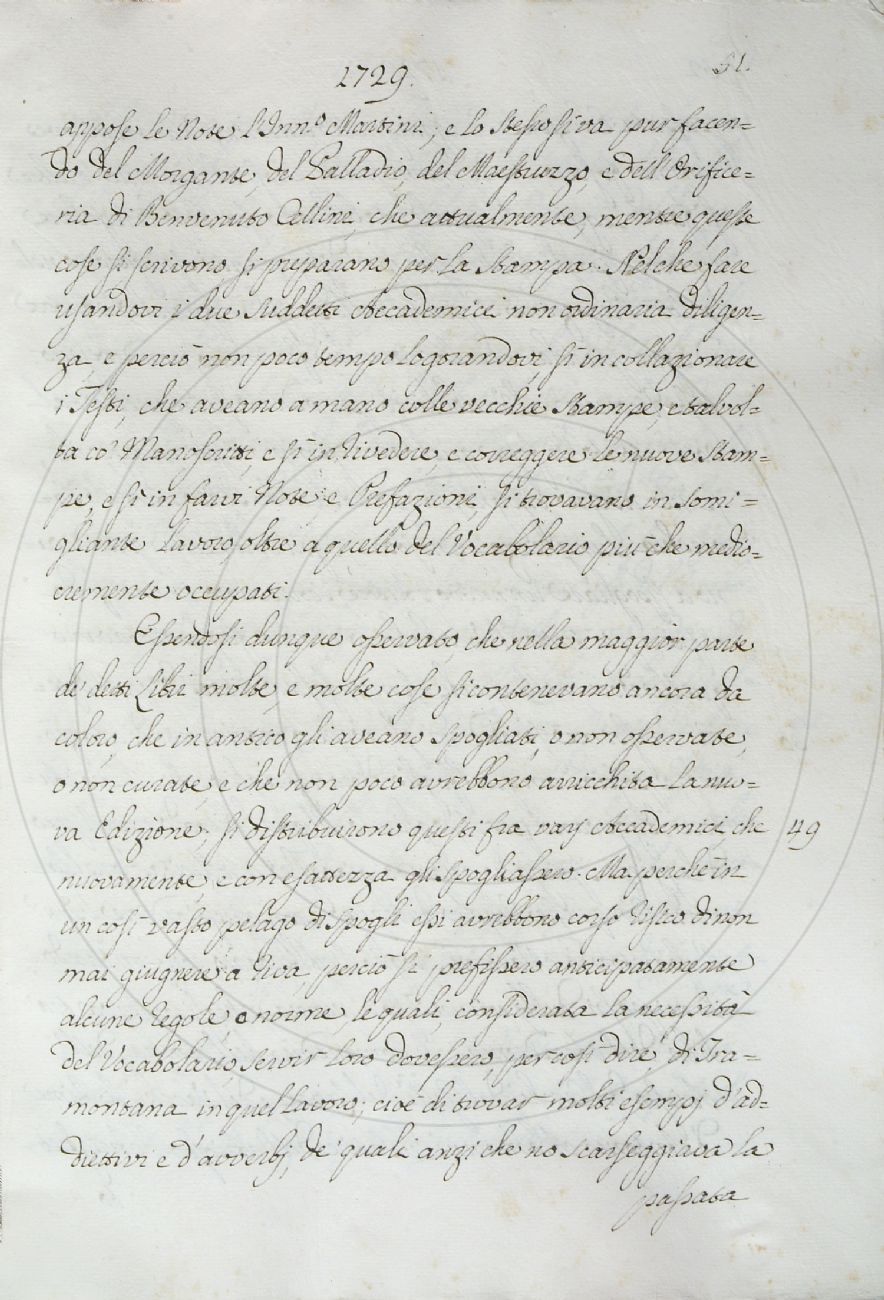 1729.
51.
appose le Note l'Inn.º Martini; e lo stesso si va pur facen=
do del Morgante, del Palladio, del Maestruzzo, e dell'Orifice=
ria di Benvenuto Cellini, che attualmente, mentre queste
cose si scrivono si preparano per la stampa. Nel che fare
usandovi i due suddetti Accademici non ordinaria diligen=
za, e perciò non poco tempo logorandovi, sì in collazionare
i Testi, che aveano a mano colle vecchie stampe, e talvol=
ta co' Manoscritti e sì in rivedere, e correggere le nuove stam=
pe, e sì in farvi Note, e Prefazioni, si trovavano in somi=
gliante lavoro, oltre a quello del Vocabolario più che medio=
cremente occupati.
Essendosi dunque osservato, che nella maggior parte
de' detti Libri molte, e molte cose si contenevano ancora da
coloro, che in antico gli aveano spogliati, o non osservate,
o non curate, e che non poco avrebbono arricchita la nuo=
va Edizione; si distribuirono questi fra varj Accademici, che
49
nuovamente, e con esattezza gli spogliassero. Ma perchè in
un così vasto pelago di spogli essi avrebbono corso risico di non
mai giugnere a riva, perciò si prefissero anticipatamente
alcune regole, o norme, le quali, considerata la necessità
del Vocabolario, servir loro dovessero, per così dire, di Tra=
montana in quel lavoro; cioè di trovar molti esempj d'ad=
diettivi e d'avverbj, de' quali anzi che no scarseggiava la
passata